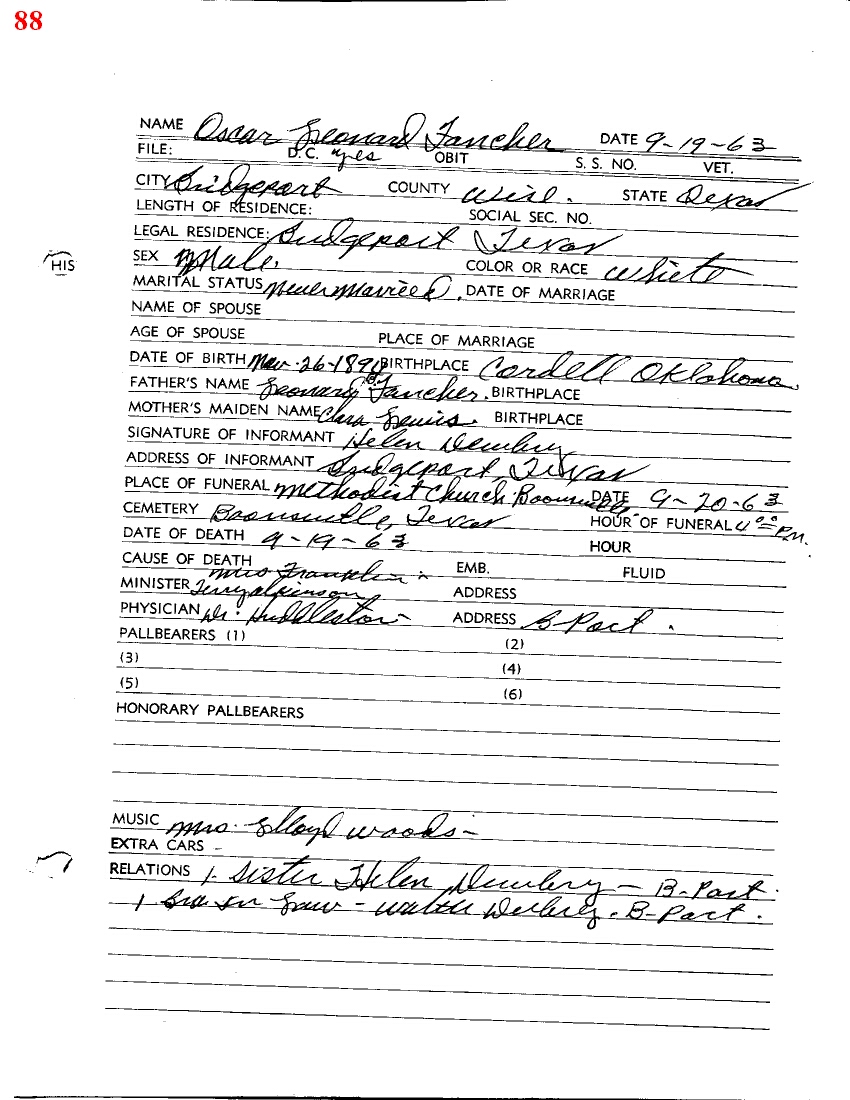 88
NAME Oscar Leonard Fancher DATE 9-19-63
FILE: D.C. yes OBIT S. S. NO. VET.
CITY Bridgeport COUNTY Wise. STATE Texas
LENGTH OF RESIDENCE: SOCIAL SEC. NO.
LEGAL RESIDENCE: Bridgeport Texas
HIS
SEX Male. COLOR OR RACE White
MARITAL STATUS Never Married. DATE OF MARRIAGE
NAME OF SPOUSE
AGE OF SPOUSE PLACE OF MARRIAGE
DATE OF BIRTH Mar. 26-189 BIRTHPLACE Cordell Oklahoma
FATHER'S NAME Leonard Fancher. BIRTHPLACE
MOTHER'S MAIDEN NAME Clara Lewis. BIRTHPLACE
SIGNATURE OF INFORMANT Helen Dewbry
ADDRESS OF INFORMANT Bridgeport, Texas
PLACE OF FUNERAL Methodist Church. Boonsville DATE 9-20-63
CEMETERY Boonsville, Texas HOUR OF FUNERAL 4:00 P.M.
DATE OF DEATH 9-19-63 HOUR
CAUSE OF DEATH EMB. FLUID
Mrs Franklin
MINISTER ADDRESS
PHYSICIAN Dr. Huddleston- ADDRESS B-Port.
PALLBEARERS (1) (2)
(3) (4)
(5) (6)
HONORARY PALLBEARERS
MUSIC Mrs. Lloyd Woods-
EXTRA CARS -
RELATIONS 1. Sister Helen Dewbery - B-Port.
1 Bro In Law - Walter Dewbery. B-Port.